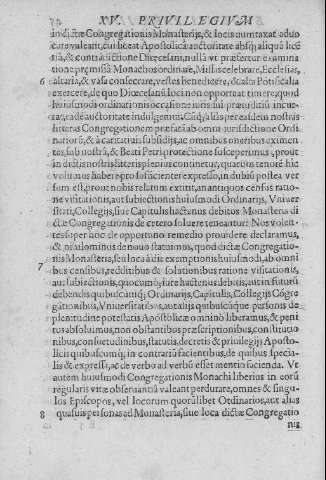 XV. PRIVILEGIVM
in dictæ Congregationis Monasterijs, & locis dumtaxat aduo
care valeant, cuiq; licet Apostolica auctoritate absq; aliqua licẽ
tia, & contradictione Diœcesani, nulla vt præfertur examina
tione præmissa Monachos ordinare, Missas celebrare, Ecclesias,
6 altaria, & vasa consecrare, vestes benedicere, & alia Pontificalia
exercere, de quo Diœcesanũ loci non opporteat timere, quod
huiusmodi ordinationis occasione iuris sui præiuditiũ incur-
rat, cũ de auctoritate indulgemus. Cũq; aliàs per easdem nostras
litteras Congregationem præfatã ab omni iurisdictione Ordi
nariorũ, & à caritatiuis subsidijs, ac omnibus oneribus eximen
tes, sub nostra, & Beati Petri protectione susceperimus, prout
in dictis nostris litteris plenius continetur, quarũ tenorẽ hic
volumus haberi pro sufficienter expresso, in dubiũ postea ver
sum est, prout nobis relatum extitit, an antiquos census ratio
ne visitationis, aut subiectionis huiusmodi Ordinarijs, Vniuer
sitati, Collegijs, siue Capitulis hactenus debitos Monasteria di
ctæ Congregationis de cetero soluere teneantur: Nos volen-
tes super hoc de opportuno remedio prouidere declaramus,
& nihilominus de nouo statuimus, quod dictæ Congregatio-
7 nis Monasteria, seu loca à die exemptionis huiusmodi, ab omni
bus censibus, redditibus & solutionibus ratione visitationis,
aut subiectionis, quocumq; iure hactenus debitis, aut in futurũ
debendis quibuscumq; Ordinarijs, Capitulis, Collegijs Cõgre
gationibus, Vniuersitatibus, aut alijs quibuscũque personis de
plenitudine potestatis Apostolicæ omninò liberamus, & peni
tus absoluimus, non obstantibus præscriptionibus, constitutio
nibus, consuetudinibus, statutis, decretis & priuilegijs Aposto-
licis quibuscumq; in contrariũ facientibus, de quibus specia-
lis & expressa, ac de verbo ad verbũ esset mentio facienda. Vt
autem huiusmodi Congregationis Monachi liberius in eorũ
regularis vitæ obseruantia valeant perdurare, omnes & singu-
los Episcopos, vel locorum quorũlibet Ordinarios, aut alias
8 quasuis personas ad Monasteria, siue loca dictæ Congregatio
nis